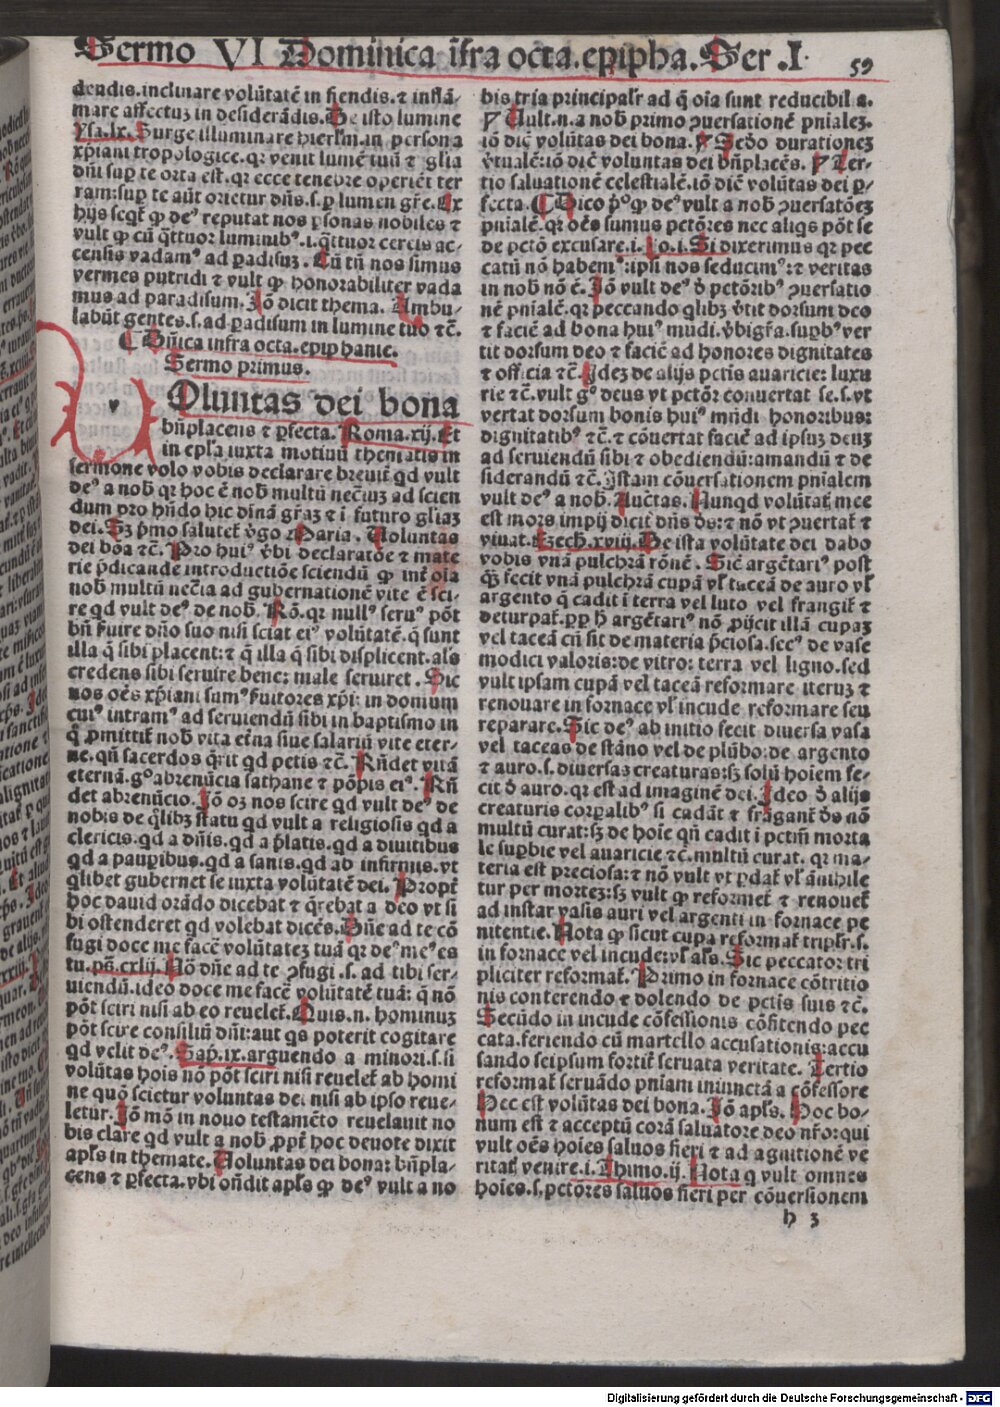 Sermo VI Dominica ĩfra octa. epipha. Ser .I. 59
dendis. inclinare volũtatẽ in fiendis. ⁊ inflã-
mare affectuz in desiderãdis. De isto lumine
ysa. lx. Surge illuminare hierl'm. in persona
xp̃iani tropologice. qꝛ venit lumẽ tuũ ⁊ gl'ia
dñi sup te orta est. qꝛ ecce tenebre operiẽt ter
ram: sup te aũt orietur dñs. s. ꝑ lumen gr̃e. Ex
hijs seqt᷑ ꝙ deꝰ reputat nos ꝑsonas nobiles ⁊
vult ꝙ cũ q̃ttuor luminibꝰ. i. q̃ttuor cereis ac-
censis vadamꝰ ad ꝑadisuz. Cũ tñ nos simus
vermes putridi ⁊ vult ꝙ honorabiliter vada
mus ad paradisum. Iõ dicit thema. Ambu-
labũt gentes. s. ad ꝑadisum in lumine tuo ⁊c̃.
¶ Dñica infra octa. epiphanie.
Sermo primus.
VOluntas dei bona
bñplacens ⁊ ꝑfecta. Roma. xij. Et
in epl'a iuxta motiuũ thematis in
sermone volo vobis declarare breuit᷑ qd vult
deꝰ a nob̃ qꝛ hoc ẽ nob̃ multũ necc̃iuz ad scien
dum pro hñdo hic diuinã gr̃az ⁊ ĩ futuro gliaz
dei. Sz pͥmo salutet᷑ v̓go Maria. Uoluntas
dei bõa ⁊c̃. Pro huiꝰ v̓bi declaratõe ⁊ mate
rie p̃dicande introductiõe sciendũ ꝙ int᷑ oĩa
nob̃ multũ nec̃ia ad gubernationẽ vite ẽ sci-
re qd vult deꝰ de nob̃. Rõ. qꝛ nullꝰ seruꝰ põt
bñ ẜuire dño suo nisi sciat eiꝰ volũtatẽ. q̃ sunt
illa q̃ sibi placent: ⁊ q̃ illa q̃ sibi displicent. al's
credens sibi seruire bene: male seruiret. Sic
nos oẽs xp̃iani sumꝰ ẜuitores xp̃i: in domum
cuiꝰ intramꝰ ad seruiendũ sibi in baptismo in
q̃ ꝓmittit᷑ nob̃ vita et̃na siue salariũ vite eter-
ne. qñ sacerdos q̃rit qd petis ⁊c̃. Rñdet vitã
eternã. gͦ abrenũcia sathane ⁊ põpis eiꝰ. Rñ
det abrenũcio. Iõ oz nos scire qd vult deꝰ de
nobis de q̃libz statu qd vult a religiosis qd a
clericis. qd a dñis. qd a p̃latis. qd a diuitibus
qd a pauꝑibus. qd a sanis. qd ab infirmis. vt
q̃libet gubernet se iuxta volũtatẽ dei. Propt᷑
hoc dauid orãdo dicebat ⁊ q̃rebat a deo vt si
bi ostenderet qd volebat dicẽs. Dñe ad te cõ
fugi doce me facẽ volũtatez tuã qꝛ deꝰ meꝰ es
tu. ps̃. cxlij. Nõ dñe ad te ꝯfugi. s. ad tibi ser-
uiendũ. ideo doce me facẽ volũtatẽ tuã: q̃ nõ
põt sciri nisi ab eo reuelet᷑. Quis. n. hominuz
põt scire consiliũ dñi: aut qs poterit cogitare
qd velit deꝰ. Sap̃. ix. arguendo a minori. s. si
volũtas hoĩs nõ põt sciri nisi reuelet᷑ ab homi
ne quõ scietur voluntas dei nisi ab ipso reue-
letur. Iõ mõ in nouo testamẽto reuelauit no
bis clare qd vult a nob̃. ꝓpt᷑ hoc deuote dixit
apl's in themate. Uoluntas dei bona: bñpla-
cens ⁊ ꝑfecta. vbi oñdit apl's ꝙ deꝰ vult a no
bis tria principalr̃ ad q̃ oĩa sunt reducibilia.
¶ Uult. n. a nob̃ primo ꝯuersationẽ pnĩalez.
iõ dic̃ volũtas dei bona. ¶ Scd̃o durationez
v̓tualẽ: iõ dic̃ voluntas dei bñplacẽs. ¶ Ter-
tio saluationẽ celestialẽ. iõ dic̃ volũtas dei ꝑ-
fecta. ¶ Dico pͥꝰ ꝙ deꝰ vult a nob̃ ꝯuersatõez
pnĩalẽ. qꝛ oẽs sumus pctõres nec aliqs põt se
de pctõ excusare. i. Io. i. Si dixerimus qꝛ pec
catũ nõ habemꝰ: ipsi nos seducimꝰ: ⁊ veritas
in nob̃ nõ ẽ. Iõ vult deꝰ ð pctõribꝰ ꝯuersatio
nẽ pnĩalẽ. qꝛ peccando q̃libz v̓tit dorsum deo
⁊ faciẽ ad bona huiꝰ mũdi. v̓bigr̃a. supb̃ꝰ ver
tit dorsum deo ⁊ faciẽ ad honores dignitates
⁊ officia ⁊c̃. Idez de alijs pctĩs auaricie: luxu
rie ⁊c̃. vult gͦ deus vt pctõr conuertat se. s. vt
vertat dorsum bonis huiꝰ mũdi honoribus:
dignitatibꝰ ⁊c̃. ⁊ cõuertat faciẽ ad ipsuz deuz
ad seruiendũ sibi ⁊ obediendũ: amandũ ⁊ de
siderandũ ⁊c̃. Istam cõuersationem pnĩalem
vult deꝰ a nob̃. Auc̃tas. Nunqd volũtat᷑ mee
est mors impij dicit dñs ds̃: ⁊ nõ vt ꝯuertat᷑ ⁊
viuat. Ezech̃. xviij. De ista volũtate dei dabo
vobis vnã pulchrã rõnẽ. Sic argẽtariꝰ post
q̃ꝫ fecit vnã pulchrã cupã vl' taceã de auro vl'
argento q̃ cadit ĩ terra vel luto vel frangit᷑ ⁊
deturpat᷑. ꝓp̃ h̃ argẽtariꝰ nõ ꝓijcit illã cupaz
vel taceã cũ sit de materia p̃ciosa. secꝰ de vase
modici valoris: de vitro: terra vel ligno. sed
vult ipsam cupã vel taceã reformare iteruz ⁊
renouare in fornace vl' incude reformare seu
reparare. Sic deꝰ ab initio fecit diuersa vasa
vel taceas de stãno vel de plũbo: de argento
⁊ auro. s. diuersas creaturas: sz solũ hoĩem fe-
cit ð auro. qꝛ est ad imaginẽ dei. Ideo ð alijs
creaturis corꝑalibꝰ si cadãt ⁊ frãgant᷑ ds̃ nõ
multũ curat: sz de hoĩe qñ cadit ĩ pctm̃ morta
le supbie vel auaricie ⁊c̃. multũ curat. qꝛ ma-
teria est preciosa: ⁊ nõ vult vt ꝑdat᷑ vl' ãnihile
tur per mortez: sz vult ꝙ reformet᷑ ⁊ renouet᷑
ad instar vasis auri vel argenti in fornace pe
nitentie. Nota ꝙ sicut cupa reformat᷑ tripl'r. s.
in fornace vel incude: vl' al's. Sic peccator tri
pliciter reformat᷑. Primo in fornace cõtritio
nis conterendo ⁊ dolendo de pctĩs suis ⁊c̃.
Secũdo in incude cõfessionis cõfitendo pec
cata. feriendo cũ martello accusationis: accu
sando seipsum fortit᷑ seruata veritate. Tertio
reformat᷑ seruãdo pnĩam iniunctã a cõfessore
Hec est volũtas dei bona. Iõ apl's. Hoc bo-
num est ⁊ acceptũ corã saluatore deo nr̃o: qui
vult oẽs hoĩes saluos fieri ⁊ ad agnitionẽ ve
ritat᷑ venire. i. Thimo. ij. Nota q̃ vult omnes
hoĩes. s. pctõres saluos fieri per cõuersionem
h 3
Digitalisierung gefördert durch die Deutsche Forschungsgemeinschaft - DFG